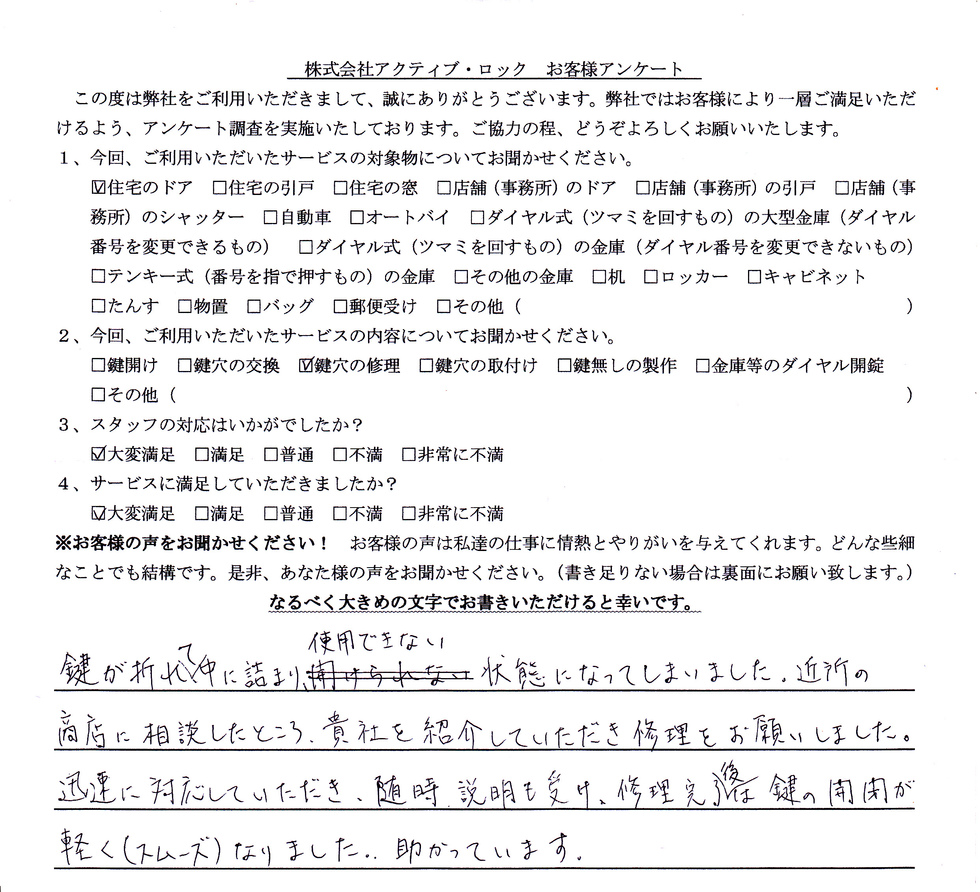 株式会社アクティブ・ロック　お客様アンケート
この度は弊社をご利用いただきまして、誠にありがとうございます。弊社ではお客様により一層ご満足いただ
けるよう、アンケート調査を実施いたしております。ご協力の程、どうぞよろしくお願いいたします。
1、今回、ご利用いただいたサービスの対象物についてお聞かせください。
☑住宅のドア　□住宅の引戸　□住宅の窓　□店舗（事務所）のドア　□店舗（事務所）の引戸　□店舗（事
務所）のシャッター　□自動車　□オートバイ　□ダイヤル式（ツマミを回すもの）の大型金庫（ダイヤル
番号を変更できるもの）　□ダイヤル式（ツマミを回すもの）の金庫（ダイヤル番号を変更できないもの）
□テンキー式（番号を指で押すもの）の金庫　□その他の金庫　□机　□ロッカー　□キャビネット
□たんす　□物置　□バッグ　□郵便受け　□その他（　　　）
2、今回、ご利用いただいたサービスの内容についてお聞かせください。
□鍵開け　□鍵穴の交換　☑鍵穴の修理　□鍵穴の取付け　□鍵無しの製作　□金庫等のダイヤル開錠
□その他（　　　）
3、スタッフの対応はいかがでしたか？
☑大変満足　□満足　□普通　□不満　□非常に不満
4、サービスに満足していただきましたか？
☑大変満足　□満足　□普通　□不満　□非常に不満
※お客様の声をお聞かせください！　お客様の声は私達の仕事に情熱とやりがいを与えてくれます。どんな些細
なことでも結構です。是非、あなた様の声をお聞かせください。（書き足りない場合は裏面にお願い致します。）
なるべく大きめの文字でお書きいただけると幸いです。
使用できない
鍵が折れて中に詰まり、開けられない状態になってしまいました。近所の
商店に相談したところ、貴社を紹介していただき修理をお願いしました。
迅速に対応していただき、随時説明も受け、修理完了後は鍵の開閉が
軽く(スムーズ)なりました。助かっています。